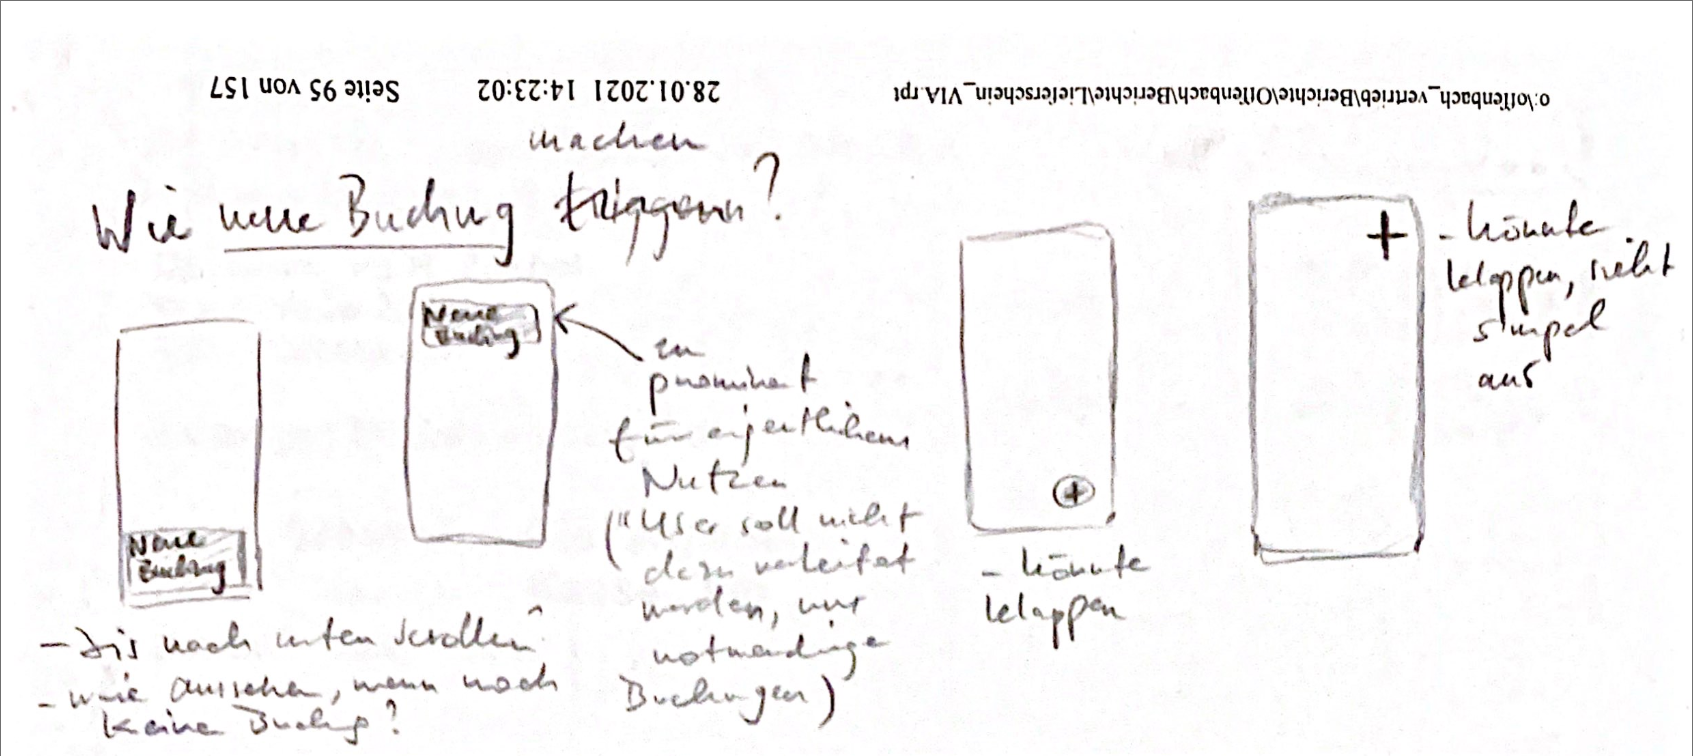 o:\offenbach_vertrieb\Berichte\Offenbach\Berichte\Lieferschein_VIA.rpt
28.01.2021 14:23:02
Seite 95 von 157
machen
Wie neue Buchung triggern?
Neue
Buchung
- bis nach unten scrollen?
- wie aussehen, wenn noch
keine Buchung?
Neue
Buchung
zu
prominent
für eigentlichen
Nutzen
("User soll nicht
dazu verleitet
werden, nur
notwendige
Buchungen)
+
- könnte
klappen
+
- könnte
klappen, sieht
simpel
aus